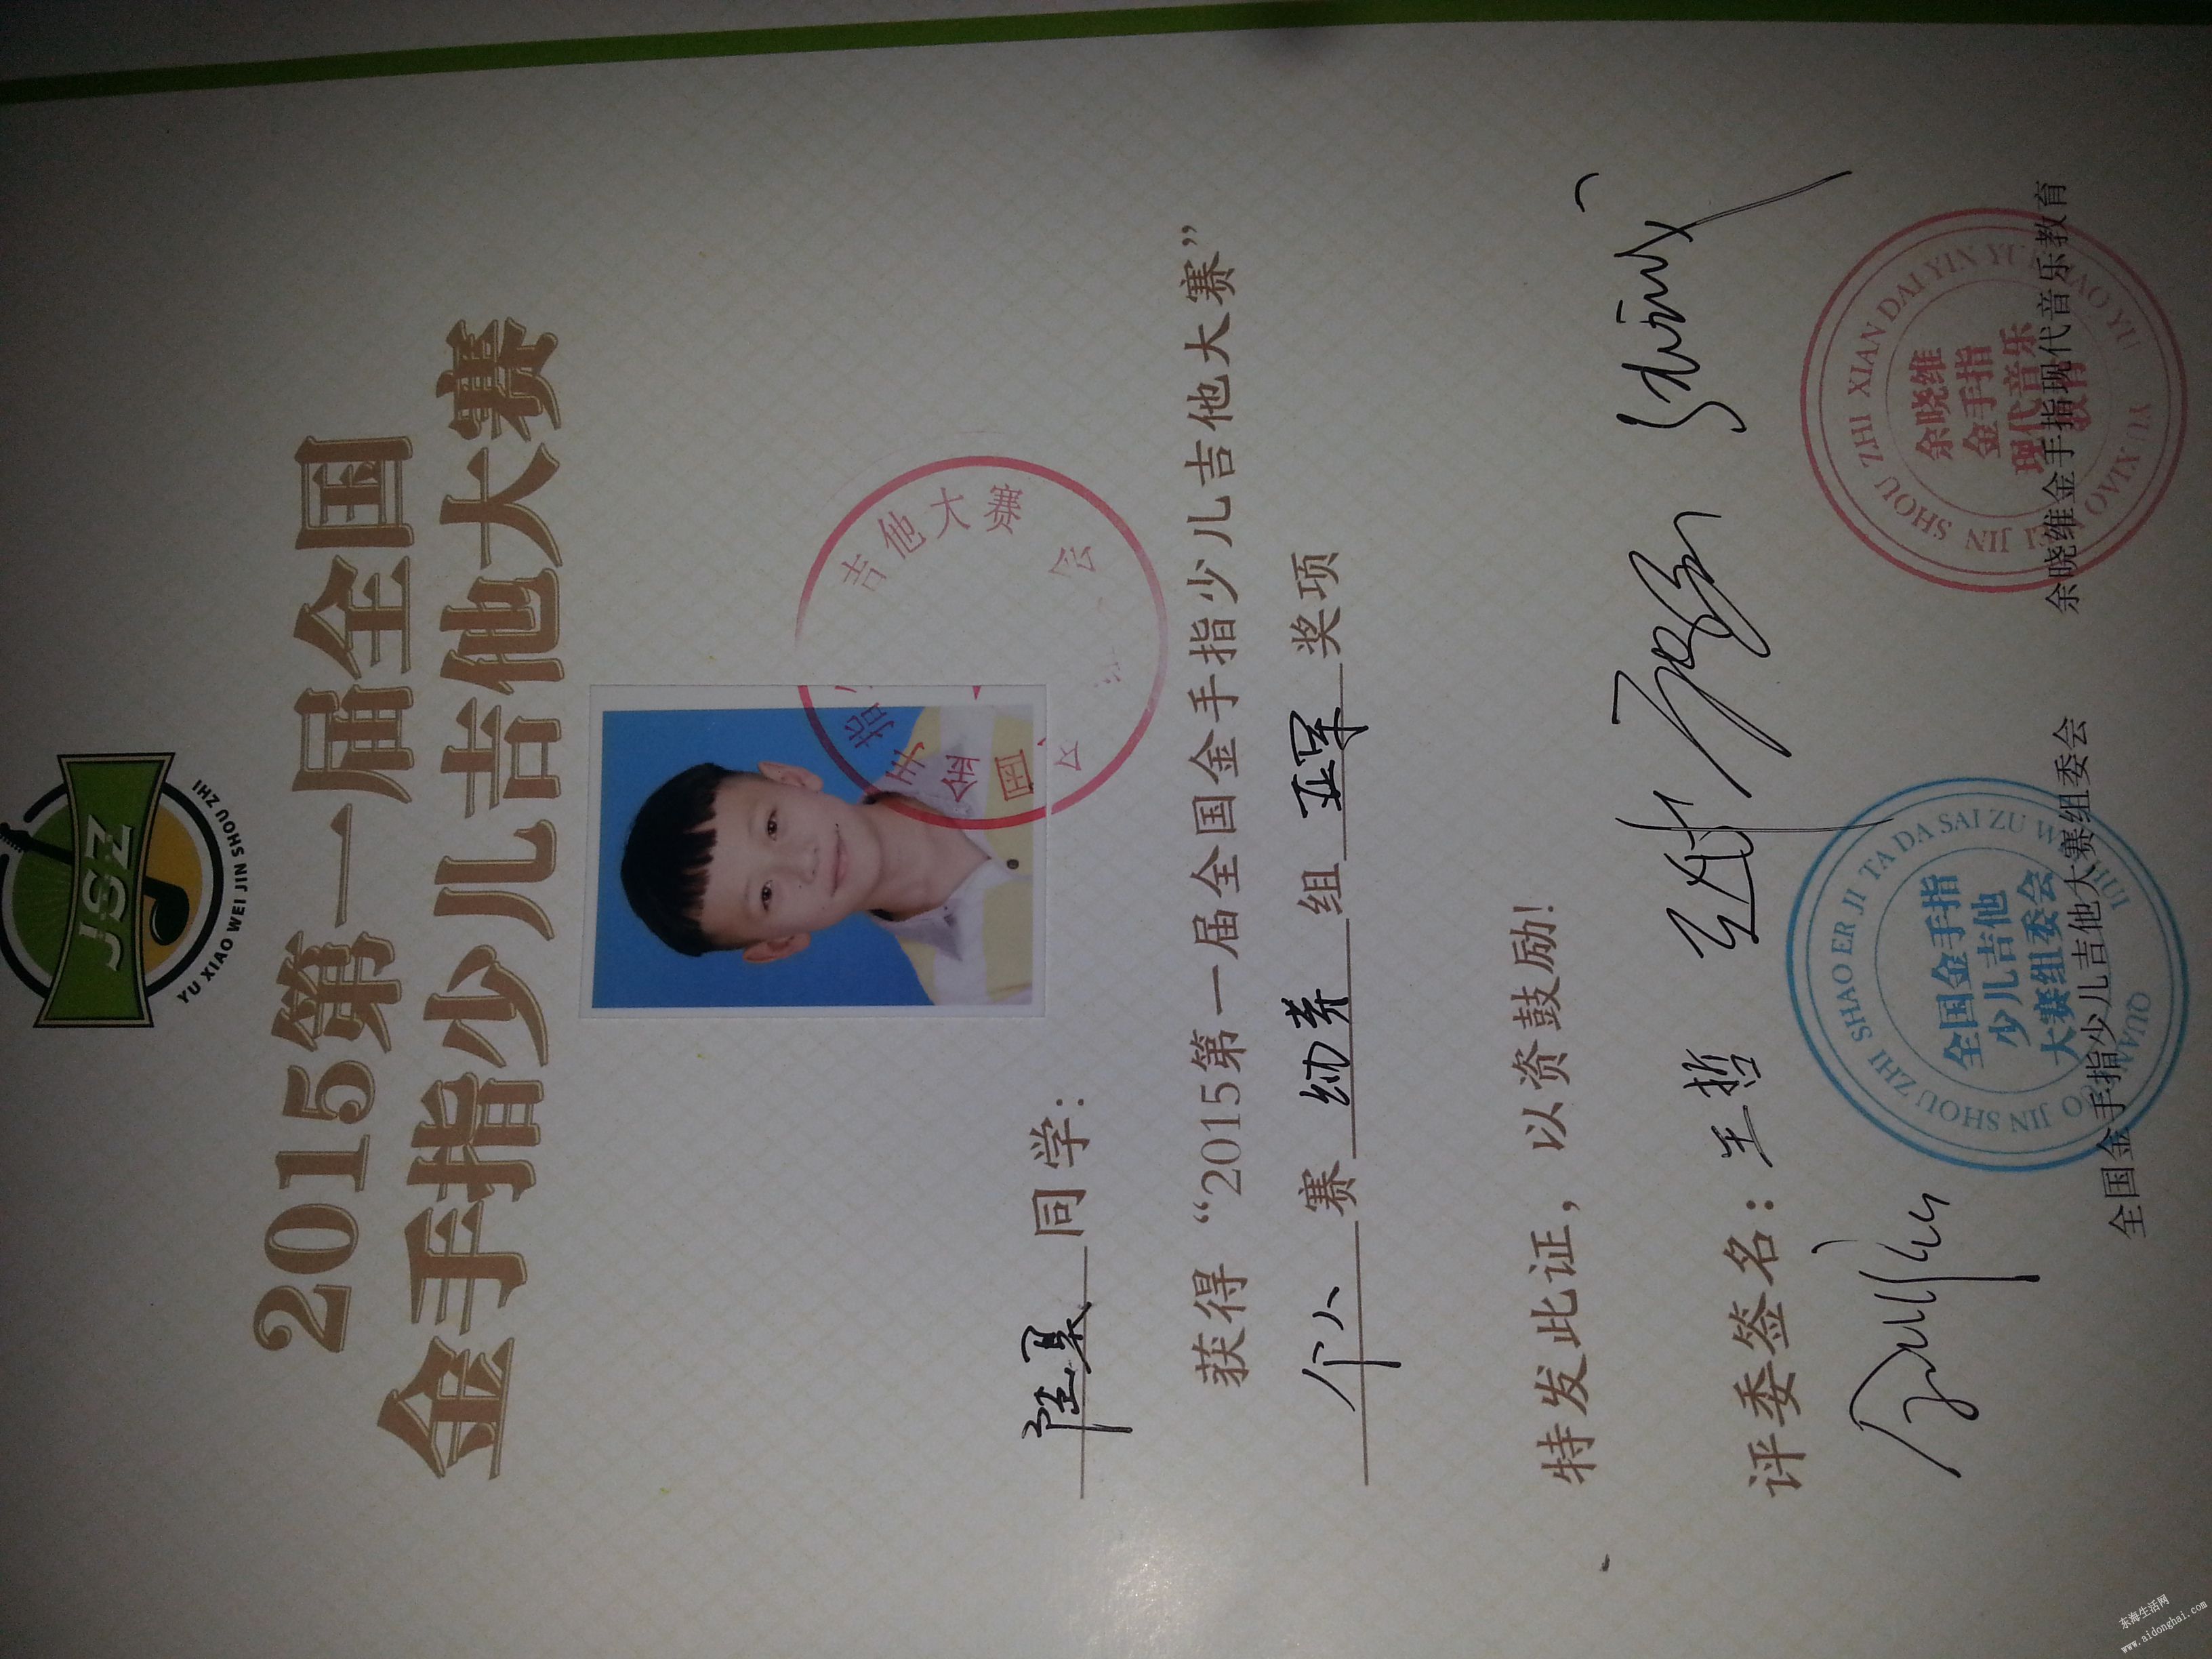 JSZ
YU XIAO WEI JIN SHOU ZHI
2015第一届全国
金手指少儿吉他大赛
同学：
获得“2015第一届全国金手指少儿吉他大赛”
个人 赛 幼养 组 亚军 奖项
特发此证，以资鼓励!
评委签名： 王哲
全国金手指
少儿吉他
大赛组委会
全国金手指少儿吉他大赛组委会
ZHI XIAN DAI YIN YU
余晓维
金手指
现代音乐
教育
余晓维金手指现代音乐教育
吉他大赛
东海生活网
www.aidonghai.com